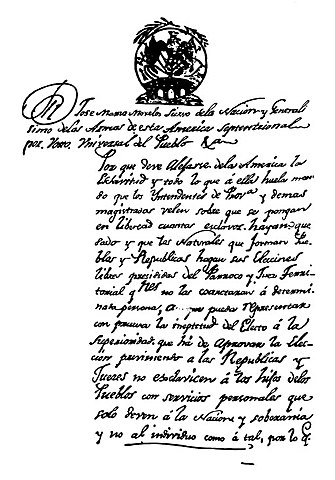 Dn José María Morelos Siervo dela Nación y Generali
simo delas Armas de esta America Septentrional
por Voto Vniversal del Pueblo &a
Por que deve Alejarse dela America la
Esclavitud y todo lo que á ella huela man
do que los Yntendentes de Prova y demas
magistrados velen sobre que se pongan
en libertad cuantos esclavos hayan que
dado y que los Naturales que forman Pue
blos y Republicas hagan sus Elecciones
libres presididas del Parroco y Juez terri
torial qnes no las coartaran á determi
nada persona, a... no pueda representar
con prueva la ineptitud del Electo á la
Superioridad que há de Aprovar la Elec
ción previniento a las Republicas y
Jueces no esclavicen á los hijos delos
Pueblos con servicios personales que
solo deven á la Nación y soberanía
y no al individuo como á tal, por lo q.